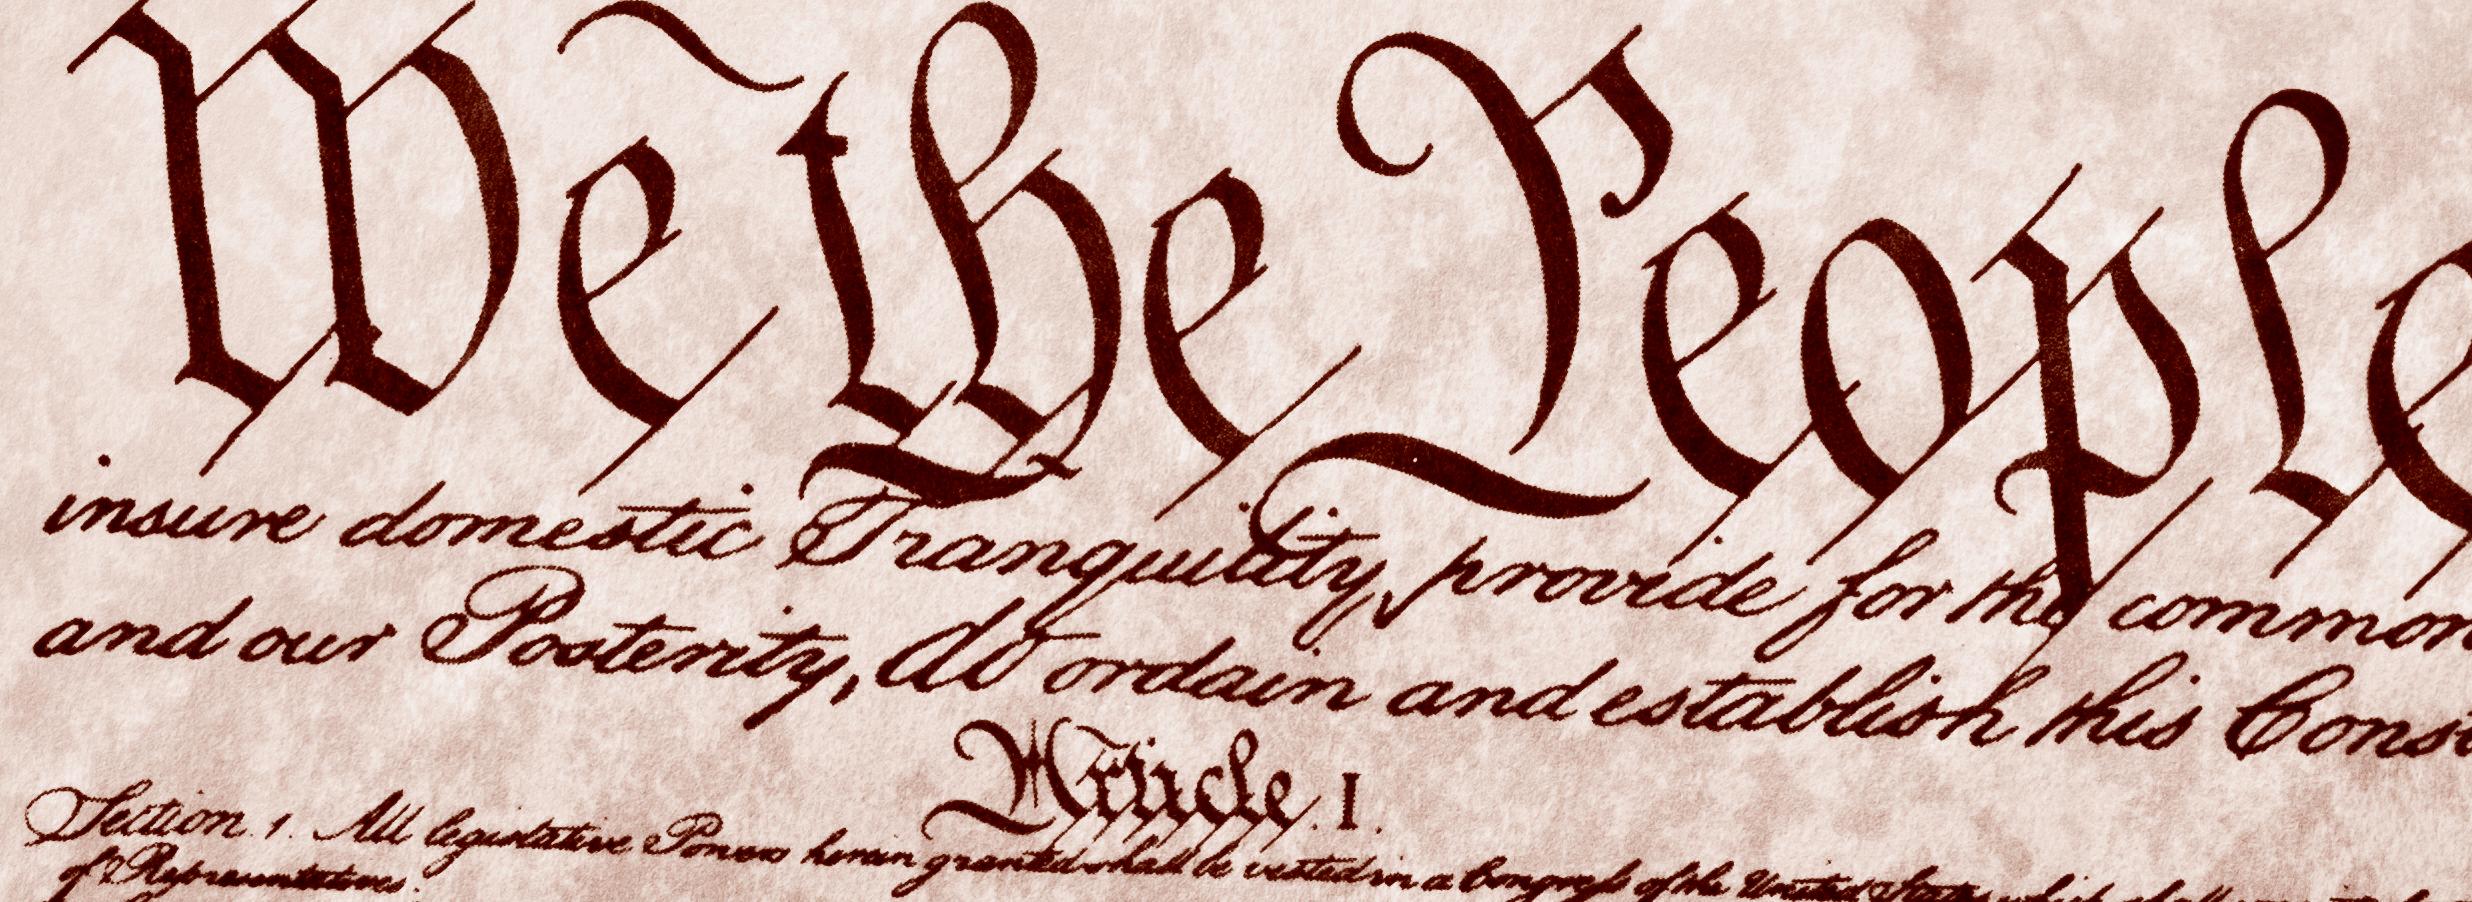 We the People
insure domestic Tranquility, provide for the common
and our Posterity, do ordain and establish this Cons
Article. I.
Section. 1. All legislative Powers herein granted shall be vested in a Congress of the United States, which shall
of Representatives.